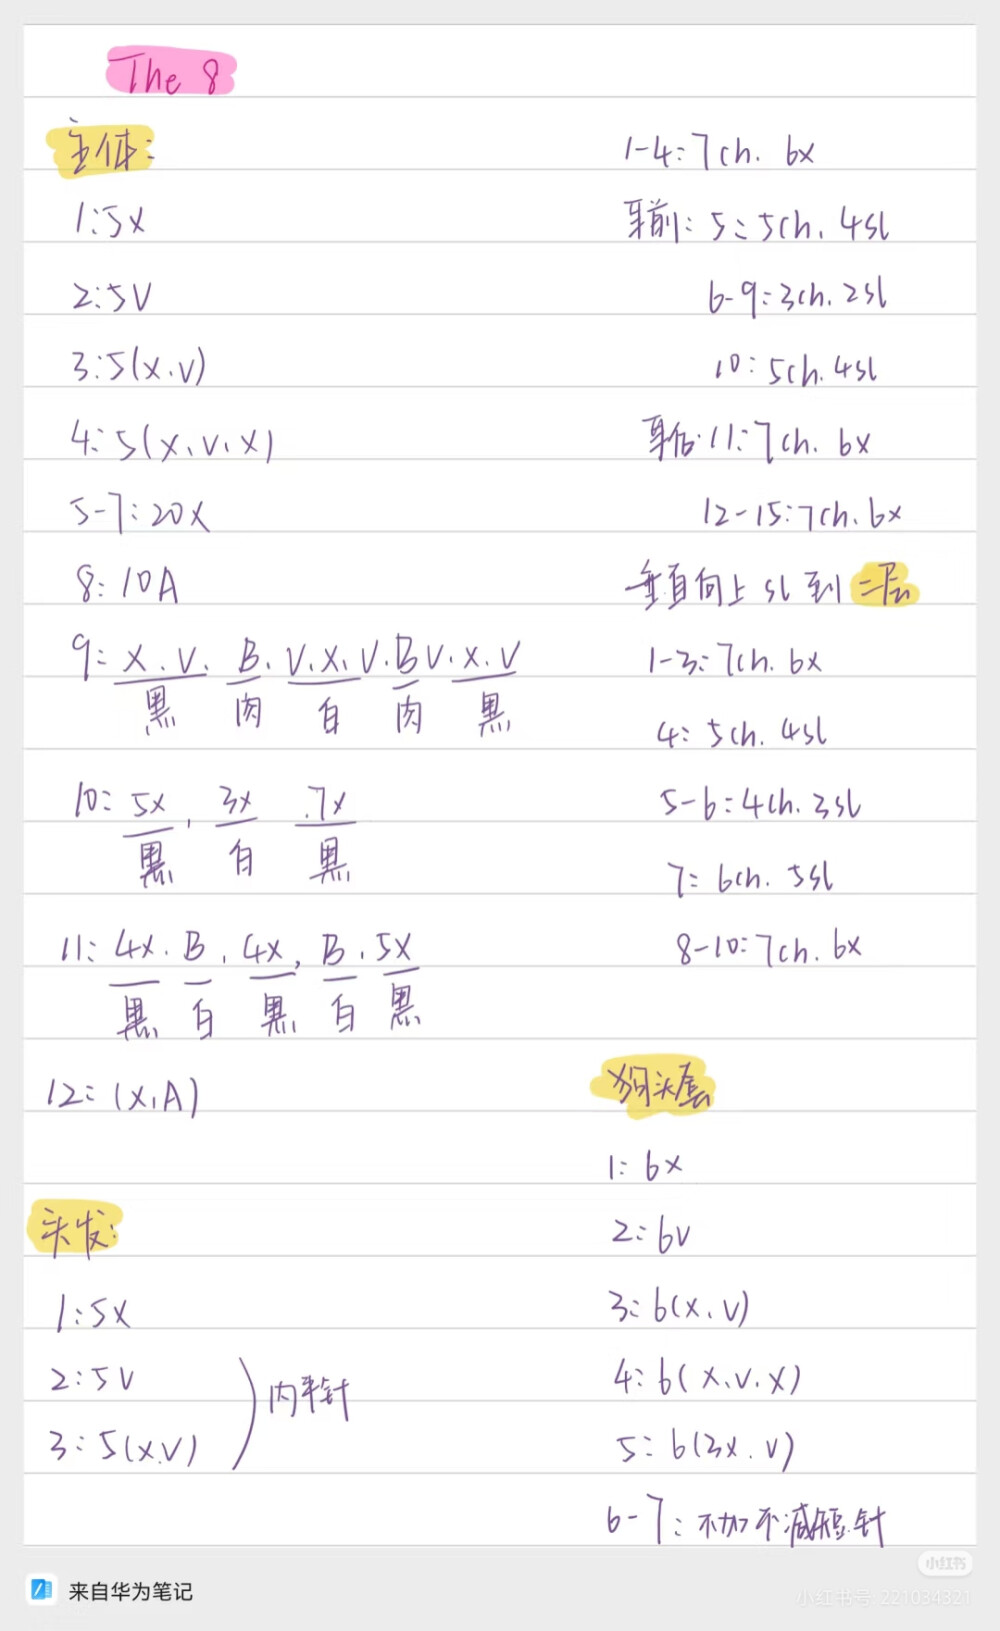 The 8
主体:
1:5X
2:5V
3:5(X.V)
4:5(X、V、X)
5-7:20X
8:10A
9:X.V. B. V.X.V. B V.X.V
黑 肉 白 肉 黑
10:5X, 3X .7X
黑 白 黑
11:4X. B, 4X, B, 5X
黑 白 黑 白 黑
12:(X,A)
头发:
1:5X
2:5V
3:5(X.V)
内半针
1-4:7ch. 6x
耳前:5:5ch. 4sl
6-9:3ch. 2sl
10:5ch. 4sl
耳后:11:7ch. 6x
12-15:7ch. 6x
垂直向上 sl 到 二层
1-3:7ch. 6x
4:5ch. 4sl
5-6:4ch. 3sl
7:6ch. 5sl
8-10:7ch. 6x
狗头套
1:6x
2:6v
3:6(x、v)
4:6(x、v.x)
5:6(3x.v)
6-7:不加不减短针
小红书
来自华为笔记
小红书号 221034321